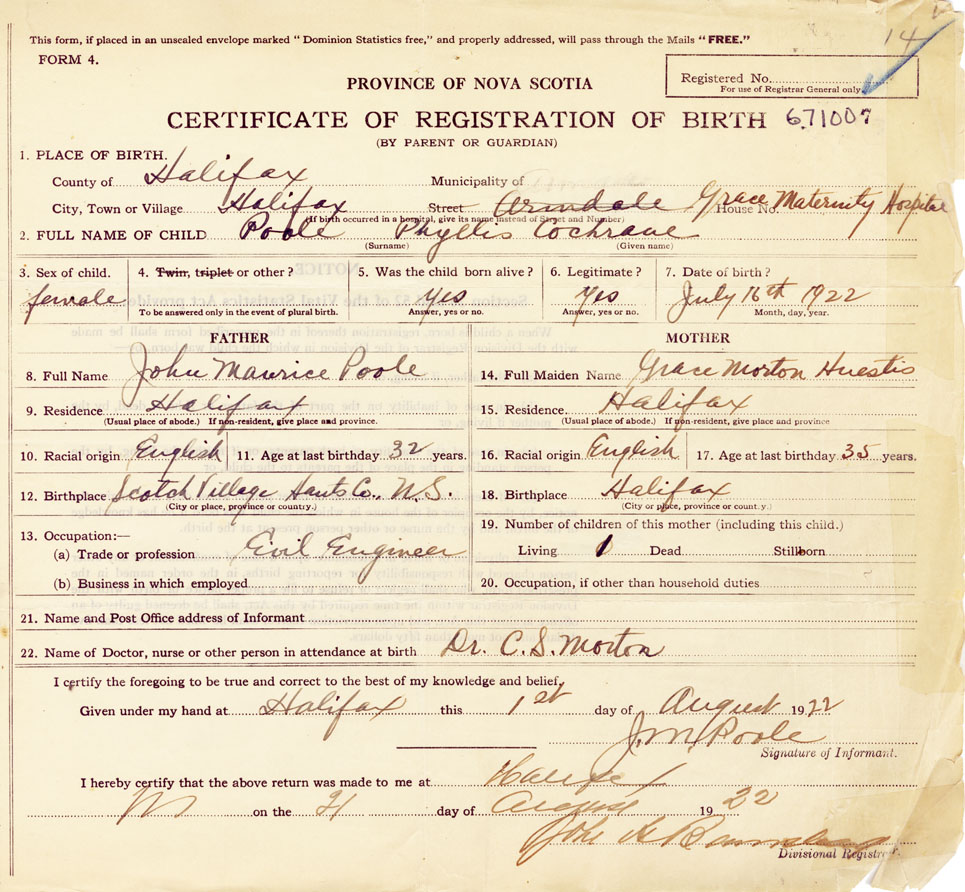 14
This form, if placed in an unsealed envelope marked "Dominion Statistics free," and properly addressed, will pass through the Mails "FREE."
FORM 4.
Registered No.
For use of Registrar General only
PROVINCE OF NOVA SCOTIA
CERTIFICATE OF REGISTRATION OF BIRTH 671007
(BY PARENT OR GUARDIAN)
1. PLACE OF BIRTH.
County of Halifax Municipality of
City, Town or Village Halifax Street Armdale House No. Grace Maternity Hospital
(If birth occurred in a hospital, give its name instead of Street and Number)
2. FULL NAME OF CHILD Poole Phyllis Cochrane
(Surname) (Given name)
3. Sex of child. 4. Twin, triplet or other? 5. Was the child born alive? 6. Legitimate? 7. Date of birth?
female Yes Yes July 16th 1922
To be answered only in the event of plural birth. Answer, yes or no. Answer, yes or no. Month, day, year.
FATHER MOTHER
8. Full Name John Maurice Poole 14. Full Maiden Name Grace Morton Huestis
9. Residence Halifax 15. Residence. Halifax
(Usual place of abode.) If non-resident, give place and province. (Usual place of abode.) If non-resident, give place and province
10. Racial origin English 11. Age at last birthday 32 years. 16. Racial origin English 17. Age at last birthday 35 years.
12. Birthplace Scotch Village Hants Co., N.S. 18. Birthplace Halifax
(City or place, province or country.) (City or place, province or country.)
13. Occupation:— 19. Number of children of this mother (including this child.)
(a) Trade or profession Civil Engineer Living 1 Dead Stillborn
(b) Business in which employed 20. Occupation, if other than household duties
21. Name and Post Office address of Informant
22. Name of Doctor, nurse or other person in attendance at birth Dr. C. S. Morton
I certify the foregoing to be true and correct to the best of my knowledge and belief.
Given under my hand at Halifax this 1st day of August 1922
J. M. Poole
Signature of Informant.
I hereby certify that the above return was made to me at Halifax
on the 21 day of August 1922
John
Divisional Registrar.